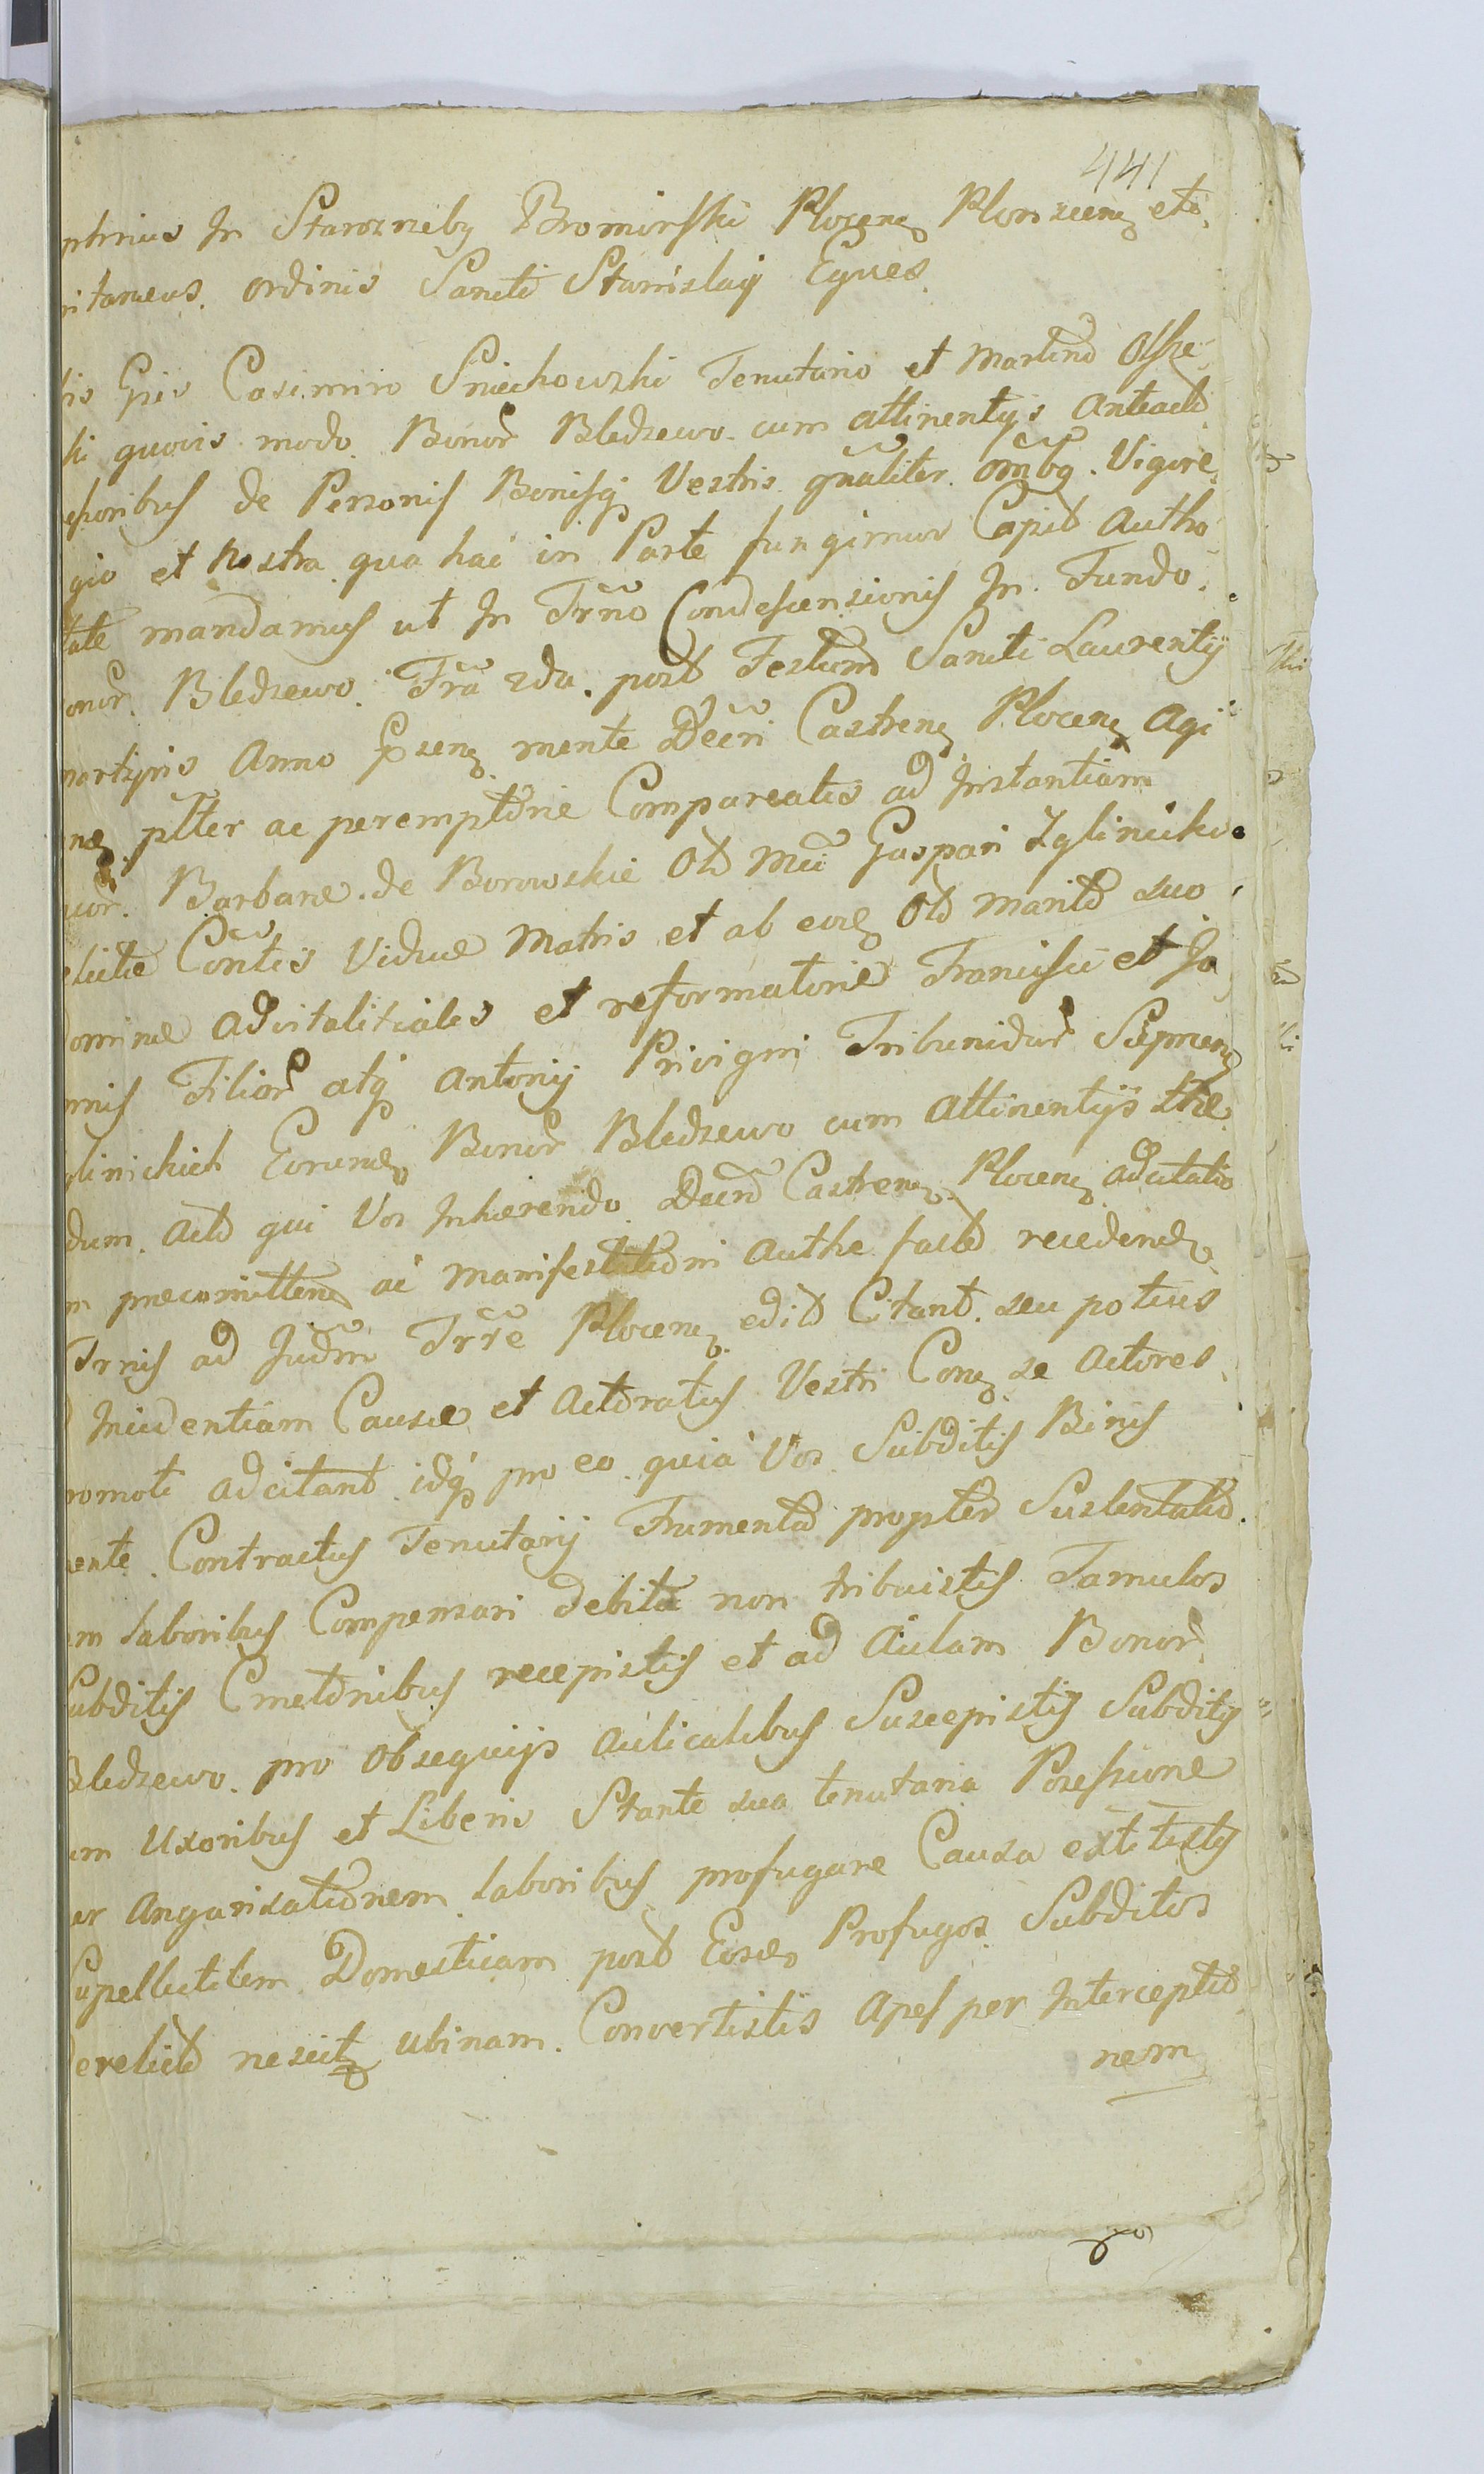 441
phrius In Starozreby Bromirski Plocen Plonscen etc
itaneus. Ordinis Sancti Stanislay Eques
is Gnis Casimiro Sniechowski Tenutario et Martino Olsze
ki quovis modo. Bonor Bledzewo cum attinentys Anteact
essoribus de Personis Bonisq Vestris gnaliter. omnbq. Vigore
gio et Nostra qua hac in Parte fungimur Capit Autho
tate mandamus ut In Trno Condescensionis In Fundo.
onor. Bledzewo. Fra 2da. post Festum Sancti Laurentij
martyris Anno Psen mente Decri Castren Plocen Agi
ptter ac peremptorie Compareatis ad Instantiam
uor. Barbare. de Borowskie Ol Mci Gaspari Zglinicki
elicte Contis Vidue Matris et ab eod Ol marito suo
omine advitalitiales et reformatorie Francisci et Jo
nnis Filior atq Antonij Privigni Tribunidar Sieprcen
glinickich Eorund Bonor Bledzewo cum attinentijs Hre
dum. Act qui Vos Inherendo Decro Castren Plocen adcitatio
m precomitten ac Manifestationi Authe fact recedend
Trnis ad Judm Trre Plocen edit Citant. seu potius
Incidentiam Cause et Actoratus Vestri Con se Actores
romoti adcitant idq pro eo quia Vos Subditis Binis
ente Contractus Tenutarij Frumenta propter Sustentatio
em laboribus Compensari debita non tribuistis Famulos
Subditis Cmetonibus recepistis et ad Aulam Bonor
Bledzewo. pro Obsequijs Aulicalibus Suscepistis Subditis
um Uxoribus et Liberis Stante sua tenutaria Possessione
er Angarisationem laboribus profugare Causa extitistis
Supellectilem Domesticam post Eosd Profugos Subditos
erelict nescit ubinam. Convertistis Apes per Intercepti
nem